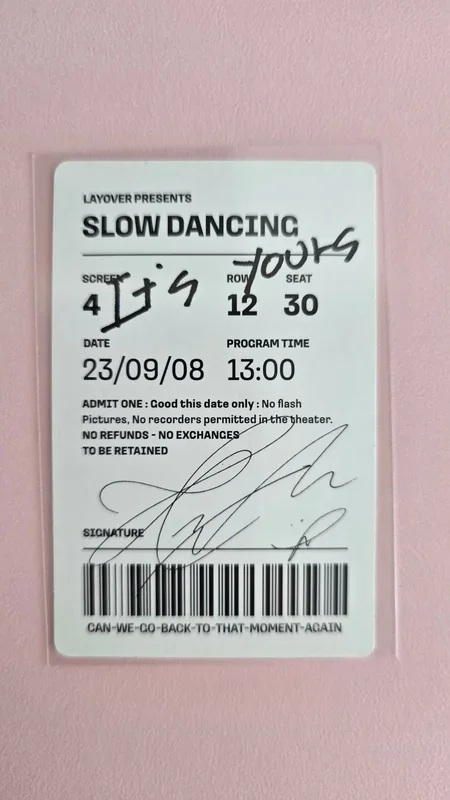 LAYOVER PRESENTS
SLOW DANCING
It's yours
SCREEN ROW SEAT
4 12 30
DATE PROGRAM TIME
23/09/08 13:00
ADMIT ONE : Good this date only : No flash
Pictures, No recorders permitted in the theater.
NO REFUNDS - NO EXCHANGES
TO BE RETAINED
SIGNATURE
CAN-WE-GO-BACK-TO-THAT-MOMENT-AGAIN